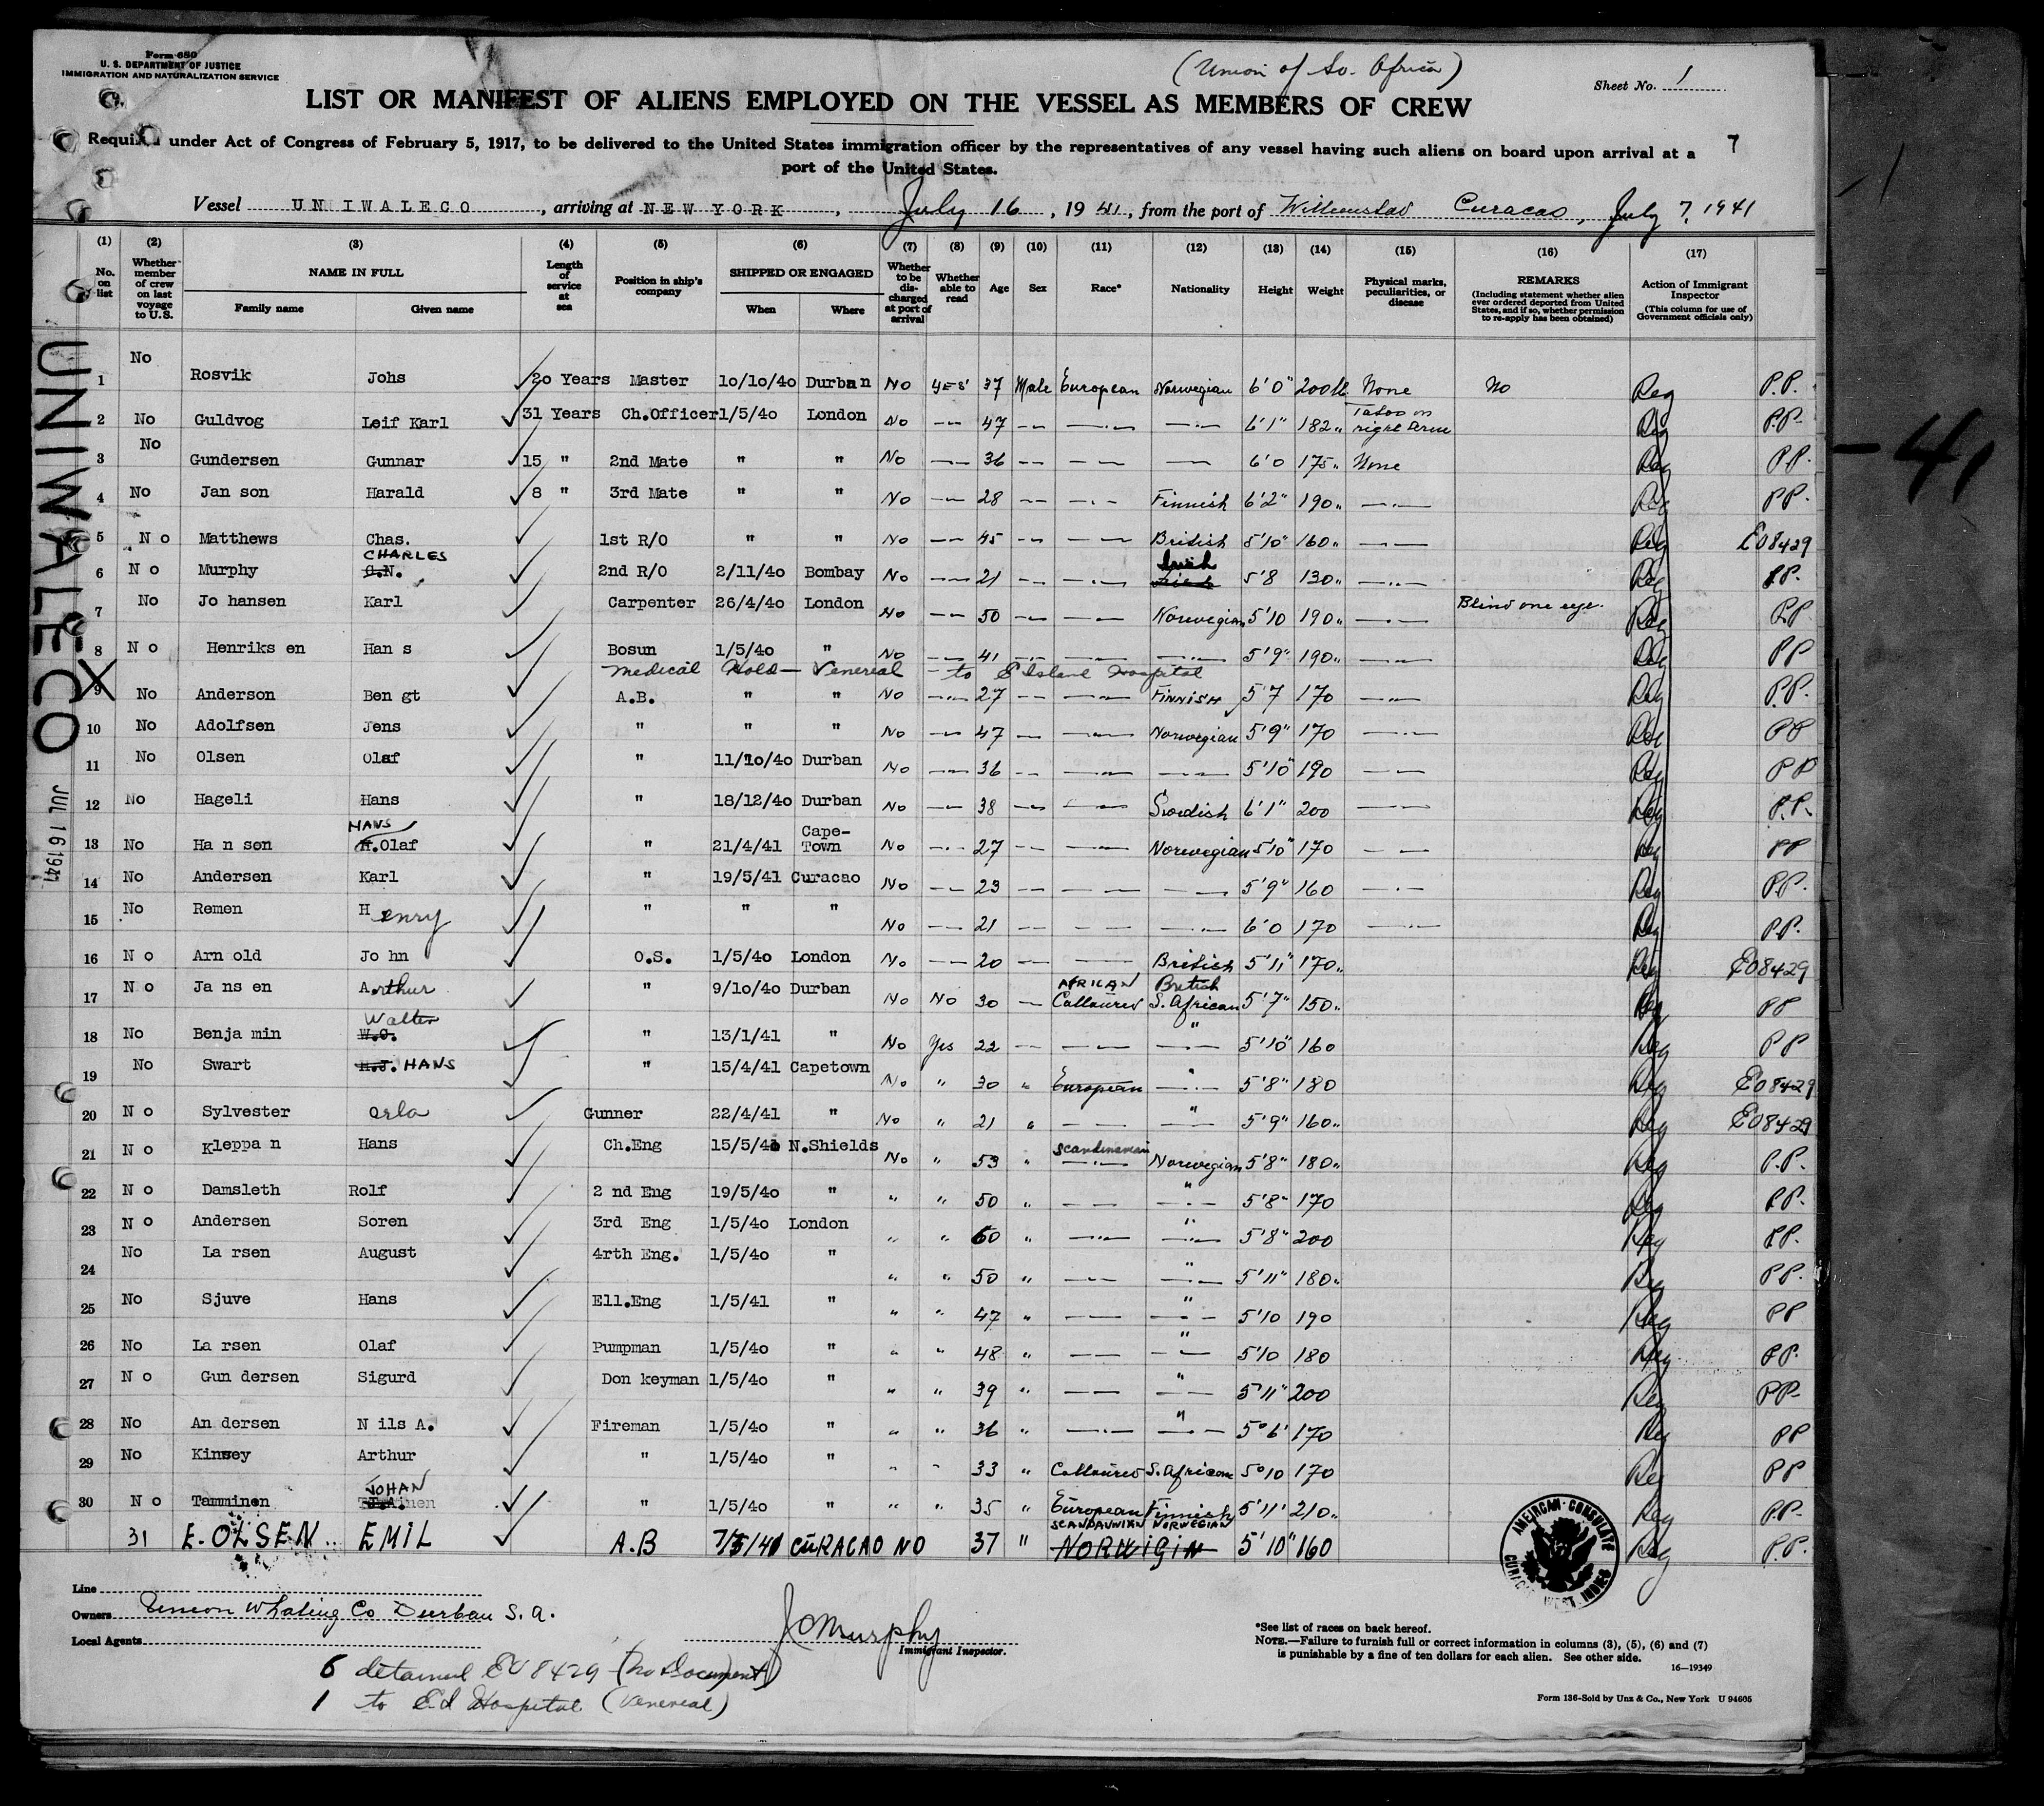 Form 680
U. S. DEPARTMENT OF JUSTICE
IMMIGRATION AND NATURALIZATION SERVICE
(Union of So. Africa)
Sheet No. 1
LIST OR MANIFEST OF ALIENS EMPLOYED ON THE VESSEL AS MEMBERS OF CREW
Required under Act of Congress of February 5, 1917, to be delivered to the United States immigration officer by the representatives of any vessel having such aliens on board upon arrival at a
port of the United States.
7
Vessel UNIWALECO, arriving at NEW YORK, July 16, 1941, from the port of Willemstad Curacao, July 7, 1941
(1) (2) (3) (4) (5) (6) (7) (8) (9) (10) (11) (12) (13) (14) (15) (16) (17)
No. on list
Whether member of crew on last voyage to U.S.
NAME IN FULL
Family name Given name
Length of service at sea
Position in ship's company
SHIPPED OR ENGAGED
When Where
Whether to be discharged at port of arrival
Whether able to read
Age
Sex
Race*
Nationality
Height
Weight
Physical marks, peculiarities, or disease
REMARKS
(Including statement whether alien ever ordered deported from United States, and if so, whether permission to re-apply has been obtained)
Action of Immigrant Inspector
(This column for use of Government officials only)
1 No Rosvik Johs 20 Years Master 10/10/40 Durban No YES 37 Male European Norwegian 6'0" 200 lb. None No Reg P.P.
2 No Guldvog Leif Karl 31 Years Ch.Officer 1/5/40 London No 47 6'1" 182 " Tatoo on right arm Reg P.P.
3 No Gundersen Gunnar 15 " 2nd Mate " " No 36 6'0 175 " None Reg PP.
4 No Jan son Harald 8 " 3rd Mate " " No 28 Finnish 6'2" 190 " Reg PP.
5 No Matthews Chas. 1st R/O " " No 45 British 5'10" 160 " Reg E08429
6 No Murphy C.N. CHARLES 2nd R/O 2/11/40 Bombay No 21 Irish 5'8 130 " Reg P.P.
7 No Jo hansen Karl Carpenter 26/4/40 London No 50 Norwegian 5'10 190 " Blind one eye. Reg PP
8 No Henriks en Han s Bosun 1/5/40 " No 41 5'9" 190 " Reg PP
Medical Hold - Venereal - to E Island Hospital
X 9 No Anderson Ben gt A.B. " " No 27 FINNISH 5'7 170 Reg P.P.
10 No Adolfsen Jens " " " No 47 Norwegian 5'9" 170 Reg PP
11 No Olsen Olaf " 11/10/40 Durban No 36 5'10" 190 Reg PP
12 No Hageli Hans " 18/12/40 Durban No 38 Swedish 6'1" 200 Reg P.P.
13 No Ha n sen H. HANS Olaf " 21/4/41 Cape-Town No 27 Norwegian 5'10" 170 Reg PP
14 No Andersen Karl " 19/5/41 Curacao No 23 5'9" 160 Reg P.P.
15 No Remen Henry " " " No 21 6'0 170 Reg P.P.
16 No Arn old Jo hn O.S. 1/5/40 London No 20 British 5'11" 170 " Reg E08429
17 No Ja ns en Arthur " 9/10/40 Durban No No 30 AFRICAN Colloured British S. African 5'7" 150 " Reg PP
18 No Benja min W.O. Walter " 13/1/41 " No Yes 22 " 5'10" 160 Reg PP
19 No Swart H.J. HANS " 15/4/41 Capetown No " 30 " European " 5'8" 180 Reg E08429
20 No Sylvester Orla Gunner 22/4/41 " No " 21 " " 5'9" 160 " Reg E08429
21 No Kleppa n Hans Ch.Eng 15/5/40 N.Shields No " 53 " Scandinavian Norwegian 5'8" 180 " Reg P.P.
22 No Damsleth Rolf 2 nd Eng 19/5/40 " " " 50 " " 5'8" 170 Reg P.P.
23 No Andersen Soren 3rd Eng 1/5/40 London " " 60 " " 5'8" 200 Reg P.P.
24 No La rsen August 4rth Eng. 1/5/40 " " " 50 " " 5'11" 180 " Reg P.P.
25 No Sjuve Hans Ell.Eng 1/5/41 " " " 47 " " 5'10 190 Reg PP
26 No La rsen Olaf Pumpman 1/5/40 " " " 48 " " 5'10 180 Reg P.P.
27 No Gun dersen Sigurd Don keyman 1/5/40 " " " 39 " " 5'11" 200 Reg PP
28 No An dersen N ils A. Fireman 1/5/40 " " " 36 " " 5'6' 170 Reg PP
29 No Kinsey Arthur " 1/5/40 " " " 33 " Colloured S. African 5'10 170 Reg PP
30 No Tamminen JOHAN " 1/5/40 " " " 35 " European Finnish 5'11' 210 " Reg P.P.
31 E. OLSEN EMIL A.B 7/5/41 CURACAO NO 37 " NORWIGIN SCANDAVNIAN NORWEGIAN 5'10" 160 Reg P.P.
UNIWALECO
JUL 16 1941
-41
AMERICAN CONSULATE
CURACAO WEST INDIES
Line
Owners Union Whaling Co Durban S.A.
Local Agents
J C Murphy
Immigrant Inspector.
*See list of races on back hereof.
NOTE.—Failure to furnish full or correct information in columns (3), (5), (6) and (7)
is punishable by a fine of ten dollars for each alien. See other side.
16—19349
6 detained E08429 - (No Document)
1 to E.I Hospital (Venereal)
Form 136-Sold by Unz & Co., New York U 94605